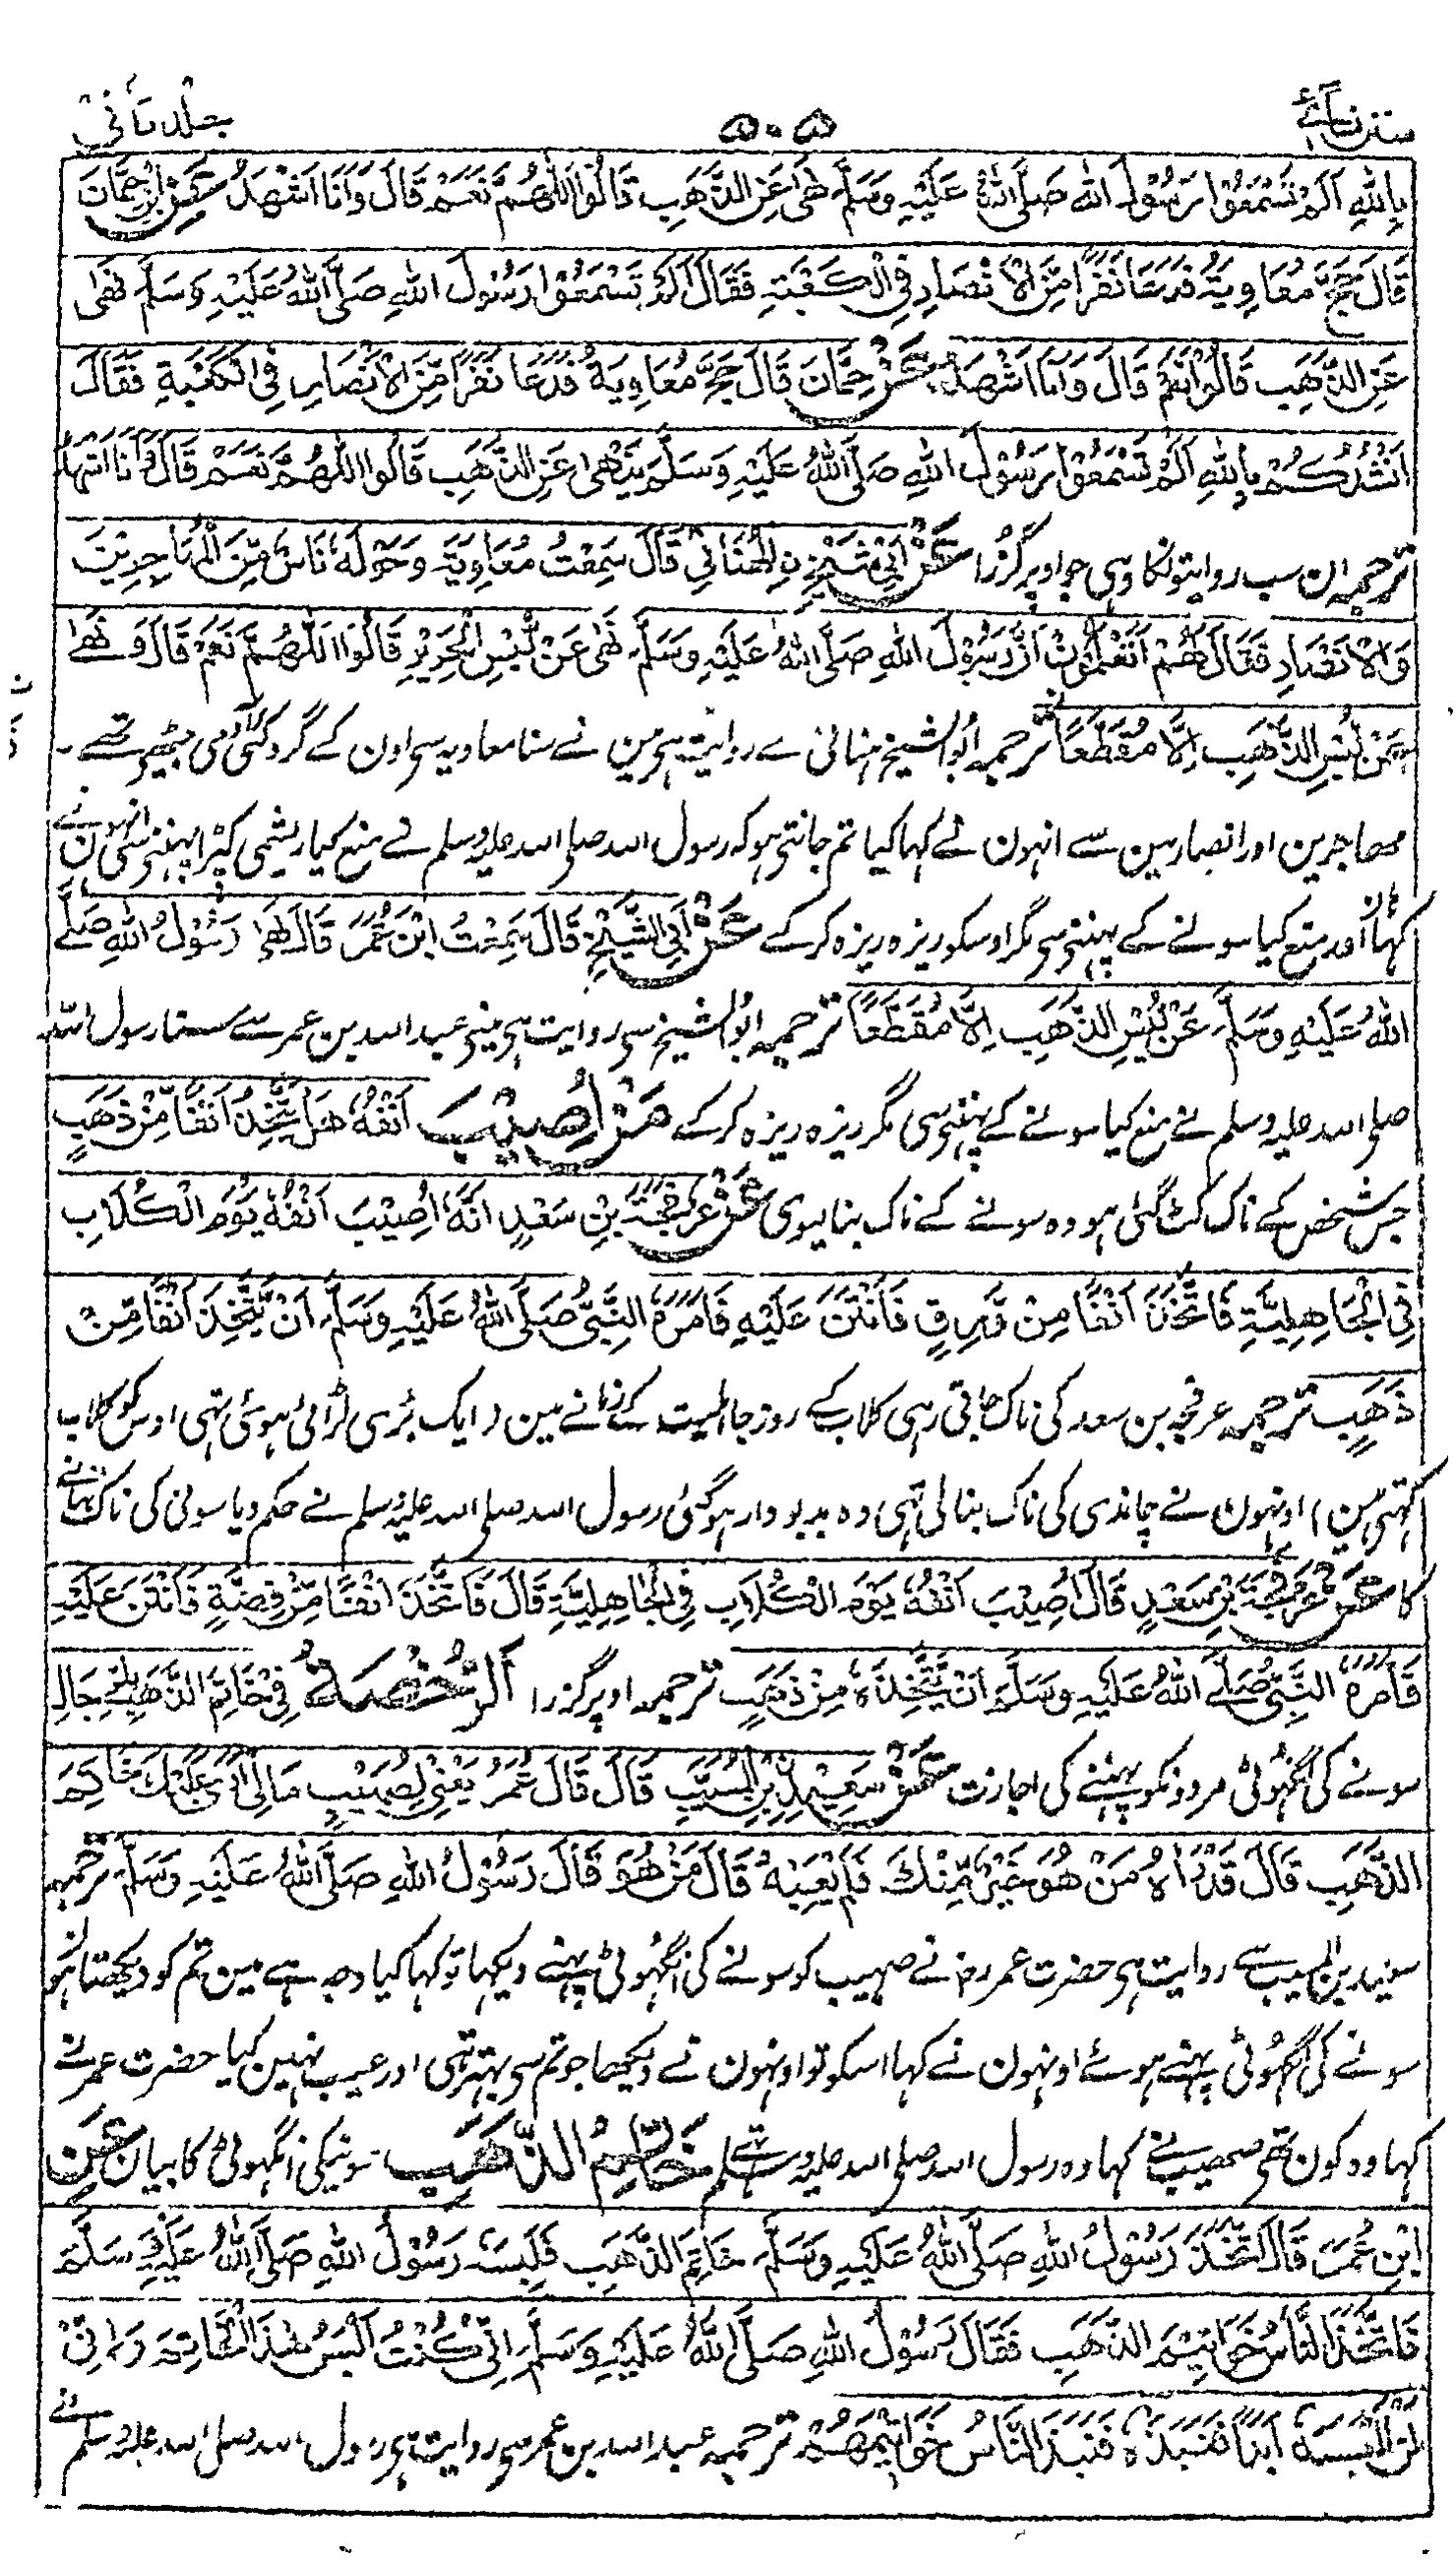 سنن نسائی ۵۰۵ جلد ثانی
بِاللّٰهِ اَلَمْ تَسْمَعُوْا رَسُوْلَ اللّٰهِ صَلَّى اللّٰهُ عَلَيْهِ وَسَلَّمَ نَهٰى عَنِ الذَّهَبِ قَالُوْا اللّٰهُمَّ نَعَمْ قَالَ وَاَنَا اَشْهَدُ عَنْ ابْنِ حِمَّانَ
قَالَ حَجَّ مُعَاوِيَةُ فَدَعَا نَفَرًا مِّنَ الْاَنْصَارِ فِي الْكَعْبَةِ فَقَالَ اَلَمْ تَسْمَعُوْا رَسُوْلَ اللّٰهِ صَلَّى اللّٰهُ عَلَيْهِ وَسَلَّمَ نَهٰى
عَنِ الذَّهَبِ قَالُوْا نَعَمْ قَالَ وَاَنَا اَشْهَدُ عَنْ حِمَّانَ قَالَ حَجَّ مُعَاوِيَةُ فَدَعَا نَفَرًا مِّنَ الْاَنْصَارِ فِي الْكَعْبَةِ فَقَالَ
اَنْشُدُكُمْ بِاللّٰهِ اَلَمْ تَسْمَعُوْا رَسُوْلَ اللّٰهِ صَلَّى اللّٰهُ عَلَيْهِ وَسَلَّمَ يَنْهٰى عَنِ الذَّهَبِ قَالُوا اللّٰهُمَّ نَعَمْ قَالَ وَاَنَا اَشْهَدُ
ترجمہ ان سب روایتونکا وہی جو اوپر گزرا عَنْ اَبِيْ شَيْخٍ نِ الْهُنَائِيْ قَالَ سَمِعْتُ مُعَاوِيَةَ وَحَوْلَهٗ نَاسٌ مِّنَ الْمُهَاجِرِيْنَ
وَالْاَنْصَارِ فَقَالَ لَهُمْ اَتَعْلَمُوْنَ اَنَّ رَسُوْلَ اللّٰهِ صَلَّى اللّٰهُ عَلَيْهِ وَسَلَّمَ نَهٰى عَنْ لُّبْسِ الْحَرِيْرِ قَالُوْا اَللّٰهُمَّ نَعَمْ قَالَ وَنَهٰى
عَنْ لُبْسِ الذَّهَبِ اِلَّا مُقَطَّعًا ترجمہ ابو الشیخ ہنائی سے روایت ہی مین نے سنا معاویہ سی اون کے گرد کئی آدمی بیٹھے تھے۔
مہاجرین اور انصار مین سے انہون نے کہا کیا تم جانتی ہو کہ رسول اللہ صلی اللہ علیہ وسلم نے منع کیا ریشمی کپڑا پہننی سی انہون نے
کہا ہان اور منع کیا سونے کے پہننی سی مگر اوسکو ریزہ ریزہ کر کے عَنْ اَبِي الشَّيْخِ قَالَ سَمِعْتُ ابْنَ عُمَرَ قَالَ نَهٰى رَسُوْلُ اللّٰهِ صَلَّى
اللّٰهُ عَلَيْهِ وَسَلَّمَ عَنْ لُبْسِ الذَّهَبِ اِلَّا مُقَطَّعًا ترجمہ ابو الشیخ سی روایت ہی مینی عبد اللہ بن عمر سے سنا رسول اللہ
صلی اللہ علیہ وسلم نے منع کیا سونے کے پہننی سی مگر ریزہ ریزہ کر کے مَنْ اُصِيْبَ اَنْفُهٗ هَلْ يَتَّخِذُ اَنْفًا مِّنْ ذَهَبٍ
جس شخص کے ناک کٹ گئی ہو وہ سونے کے ناک بنا لیوی عَنْ عَرْفَجَةَ بْنِ سَعْدٍ اَنَّهٗ اُصِيْبَ اَنْفُهٗ يَوْمَ الْكُلَابِ
فِي الْجَاهِلِيَّةِ فَاتَّخَذَ اَنْفًا مِنْ وَّرِقٍ فَاَنْتَنَ عَلَيْهِ فَاَمَرَهُ النَّبِيُّ صَلَّى اللّٰهُ عَلَيْهِ وَسَلَّمَ اَنْ يَّتَّخِذَ اَنْفًا مِّنْ
ذَهَبٍ ترجمہ عرفجہ بن سعد کی ناک جاتی رہی کلاب کے روز جاہلیت کے زمانے مین (ایک بڑی لڑائی ہوئی تہی اوس کو کلاب
کہتی ہین) اونہون نے چاندی کی ناک بنالی تہی وہ بدبو دار ہوگئی رسول اللہ صلی اللہ علیہ وسلم نے حکم دیا سونی کی ناک بنانے
کا عَنْ عَرْفَجَةَ بْنِ سَعْدٍ قَالَ اُصِيْبَ اَنْفُهٗ يَوْمَ الْكُلَابِ فِي الْجَاهِلِيَّةِ قَالَ فَاتَّخَذَ اَنْفًا مِّنْ فِضَّةٍ فَاَنْتَنَ عَلَيْهِ
فَاَمَرَهُ النَّبِيُّ صَلَّى اللّٰهُ عَلَيْهِ وَسَلَّمَ اَنْ يَّتَّخِذَهٗ مِنْ ذَهَبٍ ترجمہ اوپر گزرا اَلرُّخْصَةُ فِيْ خَاتَمِ الذَّهَبِ لِلرِّجَالِ
سونے کی انگہوٹی مردونکو پہننے کی اجازت عَنْ سَعِيْدِ بْنِ الْمُسَيَّبِ قَالَ قَالَ عُمَرُ يَعْنِيْ لِصُهَيْبٍ مَا لِيْ اَرٰى عَلَيْكَ خَاتَمَ
الذَّهَبِ قَالَ قَدْ رَاٰهُ مَنْ هُوَ خَيْرٌ مِّنْكَ فَلَمْ يَعِبْهُ قَالَ مَنْ هُوَ قَالَ رَسُوْلُ اللّٰهِ صَلَّى اللّٰهُ عَلَيْهِ وَسَلَّمَ ترجمہ
سعید بن المسیب سے روایت ہی حضرت عمر رض نے صہیب کو سونے کی انگہوٹی پہنے دیکہا تو کہا کیا وجہ ہے مین تم کو دیکھتا ہون
سونے کی انگہوٹی پہنے ہوئے اونہون نے کہا اسکو تو اونہون نے دیکھا جو تم سی بہتر تہی اور عیب نہین کیا حضرت عمر نے
کہا وہ کون تھی صہیب نے کہا وہ رسول اللہ صلی اللہ علیہ وسلم تھے خَاتَمُ الذَّهَبِ سونیکی انگہوٹی کا بیان عَنِ
ابْنِ عُمَرَ قَالَ اتَّخَذَ رَسُوْلُ اللّٰهِ صَلَّى اللّٰهُ عَلَيْهِ وَسَلَّمَ خَاتَمَ الذَّهَبِ فَلَبِسَهٗ رَسُوْلُ اللّٰهِ صَلَّى اللّٰهُ عَلَيْهِ وَسَلَّمَ
فَاتَّخَذَ النَّاسُ خَوَاتِيْمَ الذَّهَبِ فَقَالَ رَسُوْلُ اللّٰهِ صَلَّى اللّٰهُ عَلَيْهِ وَسَلَّمَ اِنِّيْ كُنْتُ اَلْبَسُ هٰذَا الْخَاتَمَ وَاِنِّيْ
لَنْ اَلْبَسَهٗ اَبَدًا فَنَبَذَهٗ فَنَبَذَ النَّاسُ خَوَاتِيْمَهُمْ ترجمہ عبد اللہ بن عمر سی روایت ہی رسول اللہ صلی اللہ علیہ وسلم نے